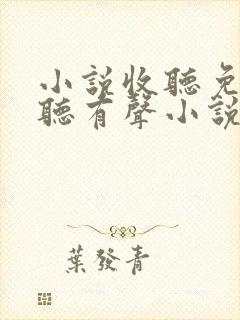 小說收聽免
聽有聲小說
葉發青